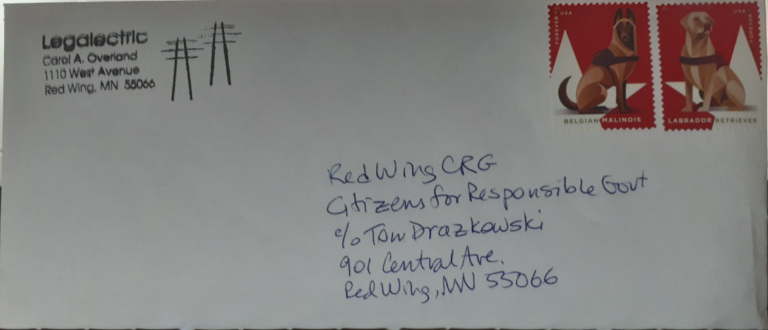 Legalectric
Carol A. Overland
1110 West Avenue
Red Wing, MN 55066
FOREVER USA
BELGIAN MALINOIS
LABRADOR RETRIEVER
Red Wing CRG
Citizens for Responsible Govt
c/o Tom Drazkowski
901 Central Ave.
Red Wing, MN 55066